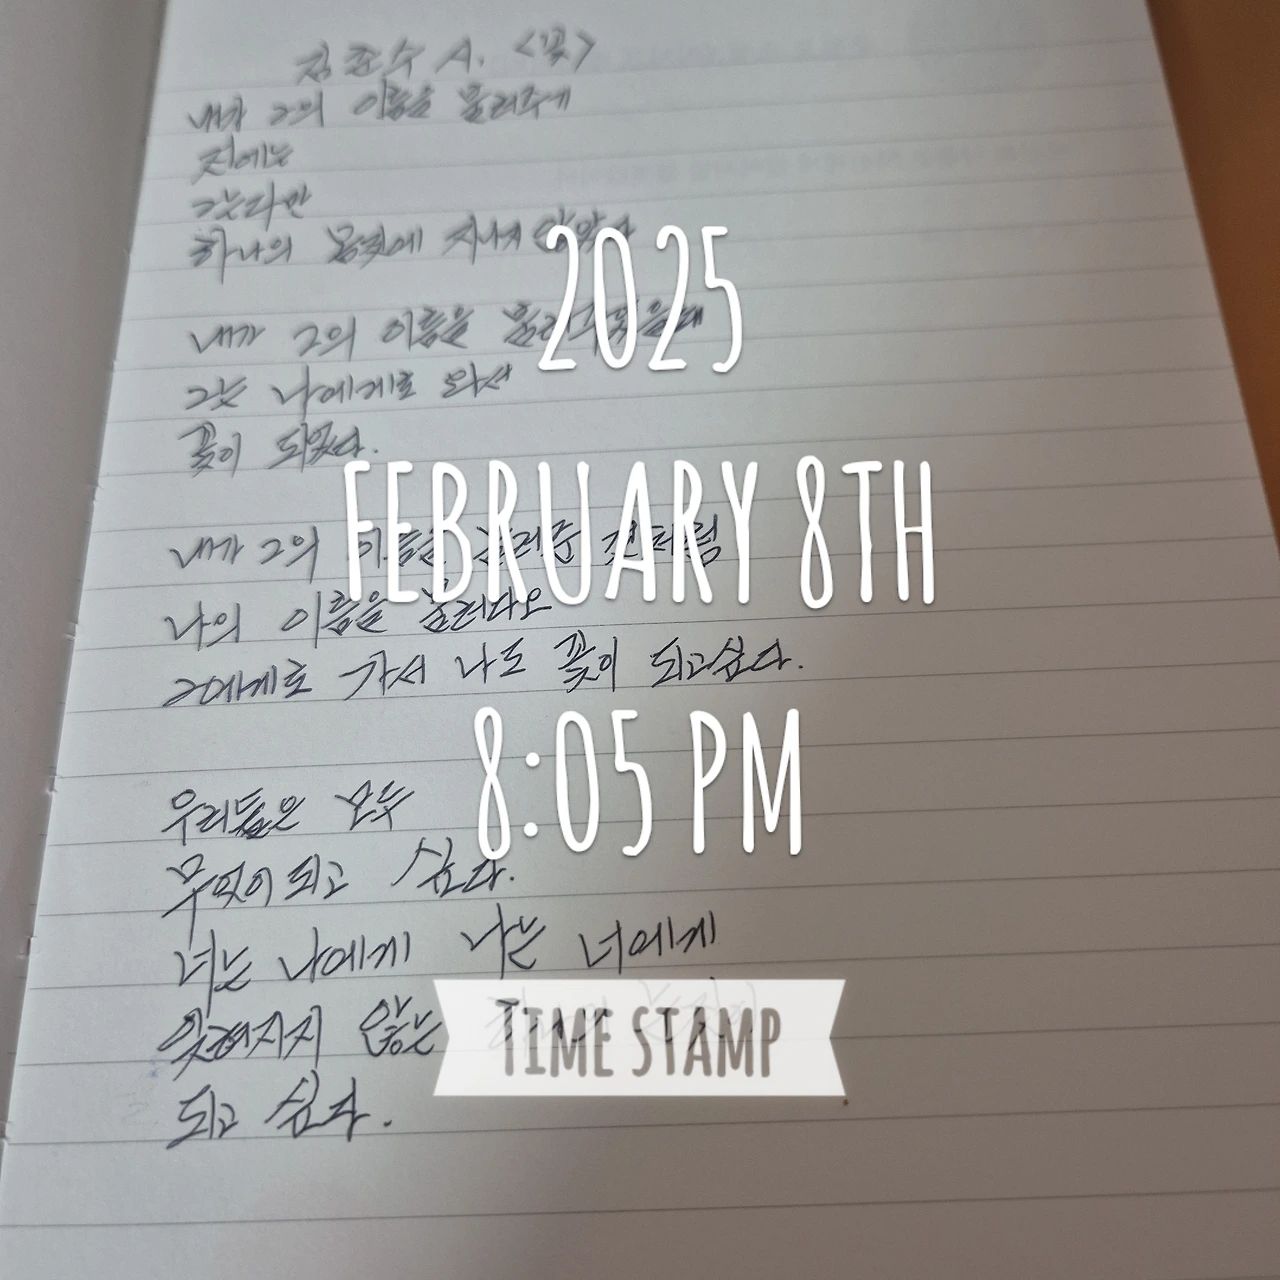 김춘수 A. <꽃>
내가 그의 이름을 불러주기
전에는
그는다만
하나의 몸짓에 지나지 않았다
내가 그의 이름을 불러주었을때
그는 나에게로 와서
꽃이 되었다.
내가 그의 이름을 불러준 것처럼
나의 이름을 불러다오
그에게로 가서 나도 꽃이 되고싶다.
우리들은 모두
무엇이 되고 싶다.
너는 나에게 나는 너에게
잊혀지지 않는
되고 싶다.
2025
FEBRUARY 8TH
8:05 PM
TIME STAMP